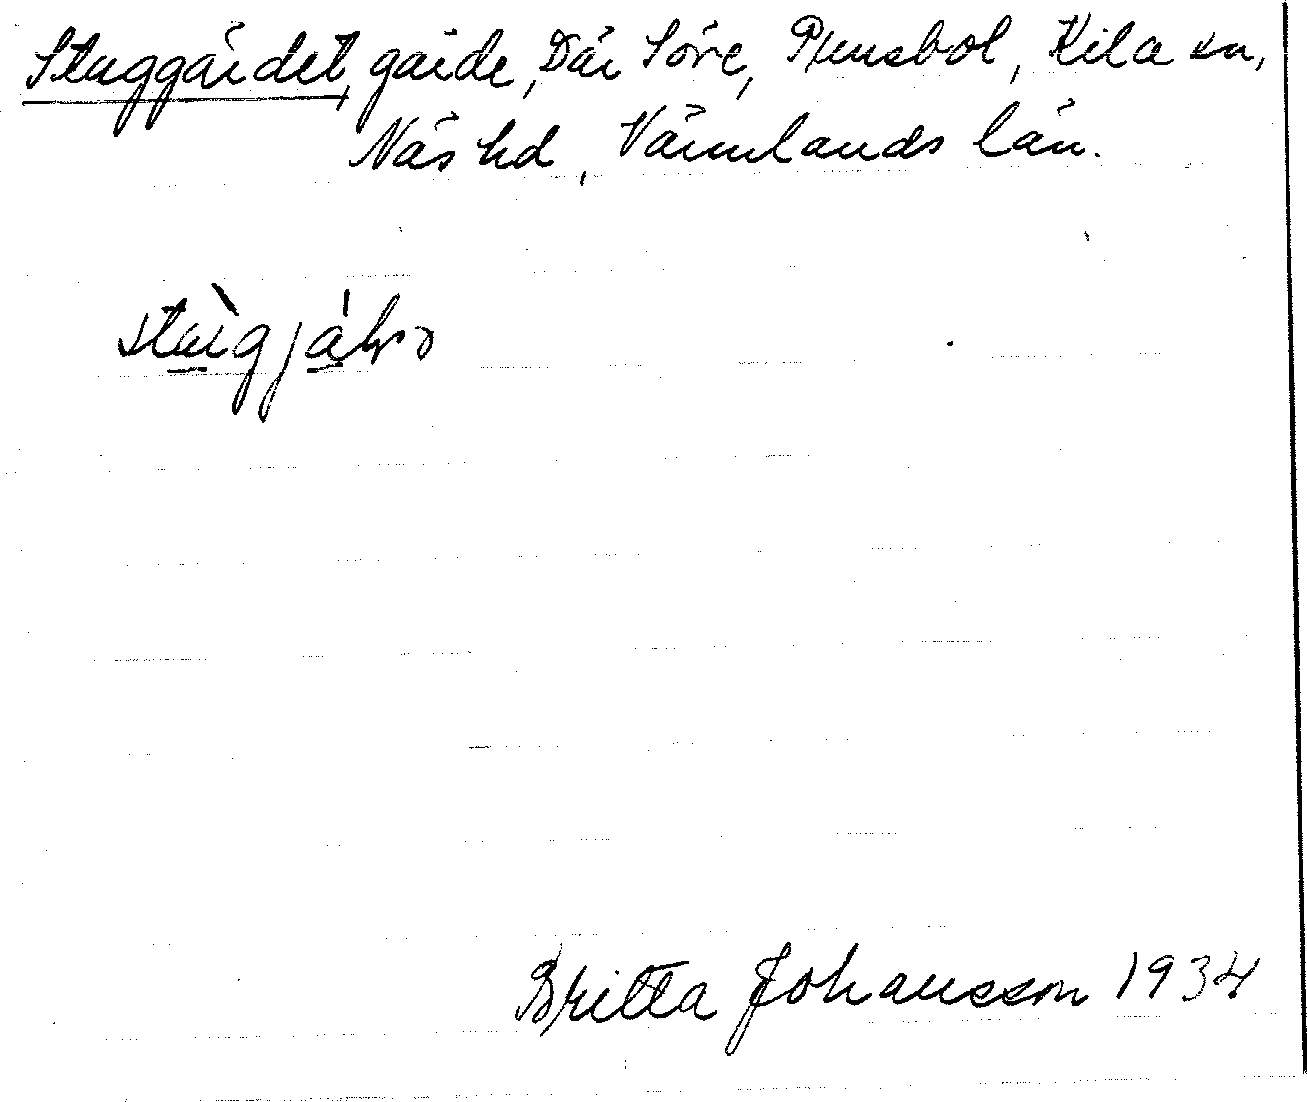 Stuggärdet, gärde, Där Söre, Rensbol, Kila sn,
Näs hd, Värmlands län.
Britta Johansson 1934